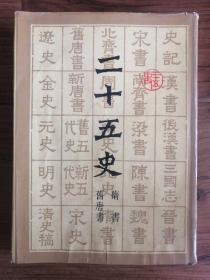 史記
漢書
後漢書
三國志
晉書
宋書
南齊書
梁書
陳書
魏書
北齊書
二十五史
隋書
舊唐書
舊唐書
新唐書
舊五代史
新五代史
宋史
遼史
金史
元史
明史
清史稿